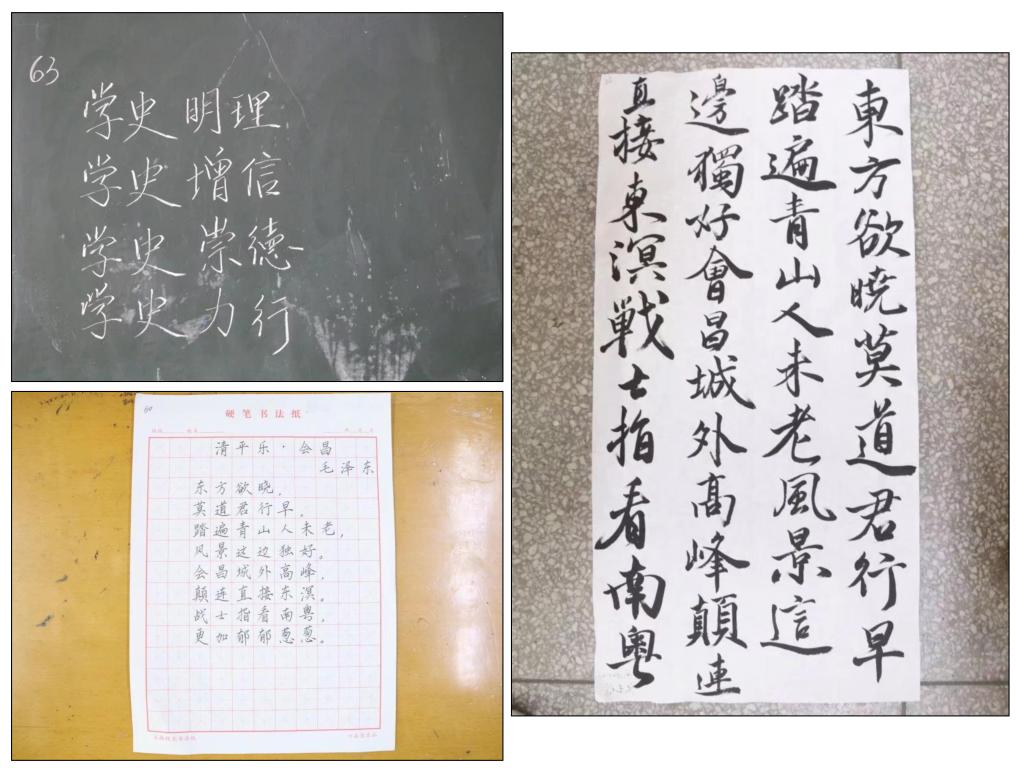 63
学史 明理
学史 增信
学史 崇德
学史 力行
60
硬笔书法纸
清平乐·会昌
毛泽东
东方欲晓，
莫道君行早，
踏遍青山人未老，
风景这边独好。
会昌城外高峰，
颠连直接东溟。
战士指看南粤，
更加郁郁葱葱。
東方欲曉莫道君行早
踏遍青山人未老風景這
邊獨好會昌城外高峰顛連
直接東溟戰士指看南粵